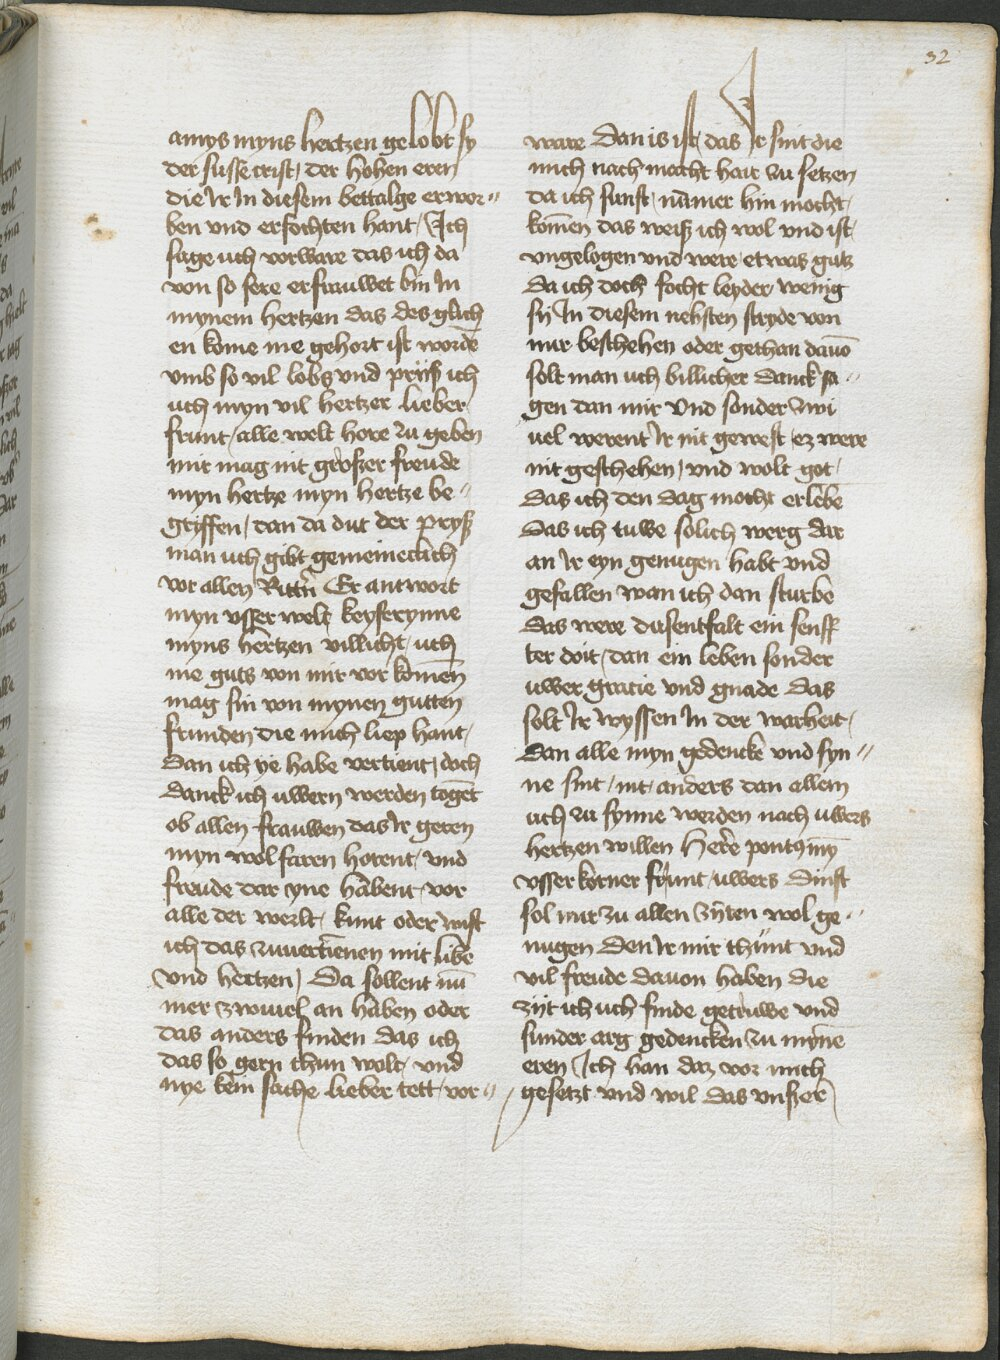 32
amys myns hertzen gelobt sy
der susse crist, der hohen eren
die Ir In diesem bettalge erwor„
ben vnd erfochten hant, Ich
sage uch vorware das ich da
von so sere erfrauwet bin In
mynem hertzen das des glich
en kome me gehort ist wordē
vmb so vil lobs vnd prijß ich
uch myn vil hertzer lieber
frunt, alle welt hore zu geben
mir mag nit großzer freude
myn hertze myn hertze be„
griffen, dan da dut der pryß
man uch gibt gemeineclich
vor allen Rittn̄ Er antwort
myn vsser welt keyserynne
myns hertzen villicht, uch
me guts von mir vor komen
mag sin von mynen gutten
frunden die mich liep hant,
Dan ich ye habe vertient, doch
danck ich uwern werden togēt
ob allen frauwen das Ir geren
myn wolfaren horent, vnd
freude dar yne habent, vor
alle der werlt, kunt oder wist
ich das zuuertienen mit libe
vnd hertzen, Da sollent nū
mer zwiuel an haben oder
das anders finden das ich
das so gern thun wolt, vnd
nye kein sache lieber tett, vor„
ware Dan is ist, das Ir sint die
mich nach macht hait zu setzen
da ich sunst, nūmer hin mocht,
komen das weiß ich wol vnd ist,
vngelogen vnd were etwas guts
da ich doch focht leyder wenig
sy In diesem nehsten stryde von
mir beschehen oder gethan dauō
solt man uch billicher danck sa„
gen dan mir Vnd sonder zwi
uel werent Ir nit gewest, ez were
nit geschehen, vnd wolt got,
das ich den dag mocht erlebē
das ich tuwe solich werg dar
an Ir eyn genugen habt vnd
gefallen wan ich dan sturbe
das were dusentfalt ein senff
ter doit, dan ein leben sonder
uwer gracie vnd gnade das
solt Ir wyssen In der warheit,
dan alle myn gedencke vnd syn„
ne sint, nit anders dan allein
uch zu synne werden nach uwers
hertzen willen Here pontus mȳ
vsser korner frunt, uwers dinst
sol mir zu allen zyten wol ge„
nugen Den Ir mir thunt vnd
vil freude dauon haben die
zijt ich uch finde getruwe vnd
sunder arg gedencken zu mynē
eren Ich han daz vor mich
gesetzt vnd wil das vnszer